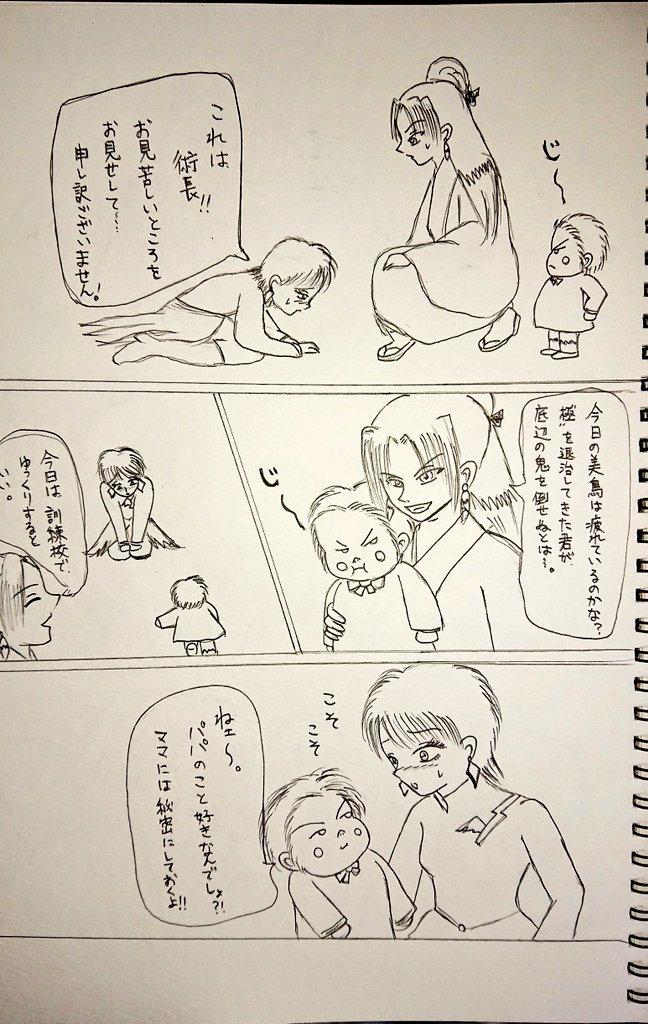 じ〜
これは
術長!!
お見苦しいところを
お見せして……
申し訳ございません!
今日の美鳥は疲れているのかな?
"極"を退治してきた君が
底辺の鬼を倒せぬとは…。
じ〜
今日は訓練校で
ゆっくりすると
いい。
こそ
こそ
ねェ〜。
パパのこと好きなんでしょ?!
ママには秘密にしておくよ!!